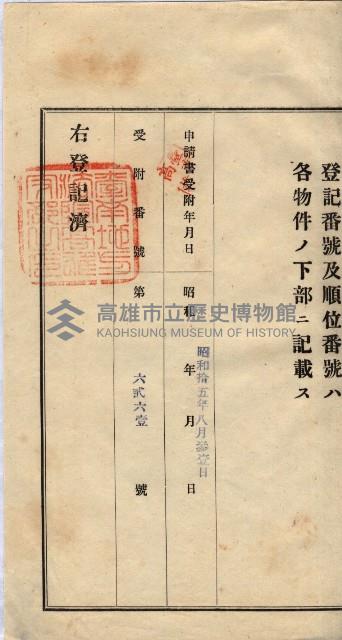 登記番號及順位番號ハ
各物件ノ下部ニ記載ス
申請書受附年月日
昭和 年 月 日
昭和拾五年八月參壹日
受附番號
第 號
六貳六壹
右登記濟
高雄市立歷史博物館
KAOHSIUNG MUSEUM OF HISTORY